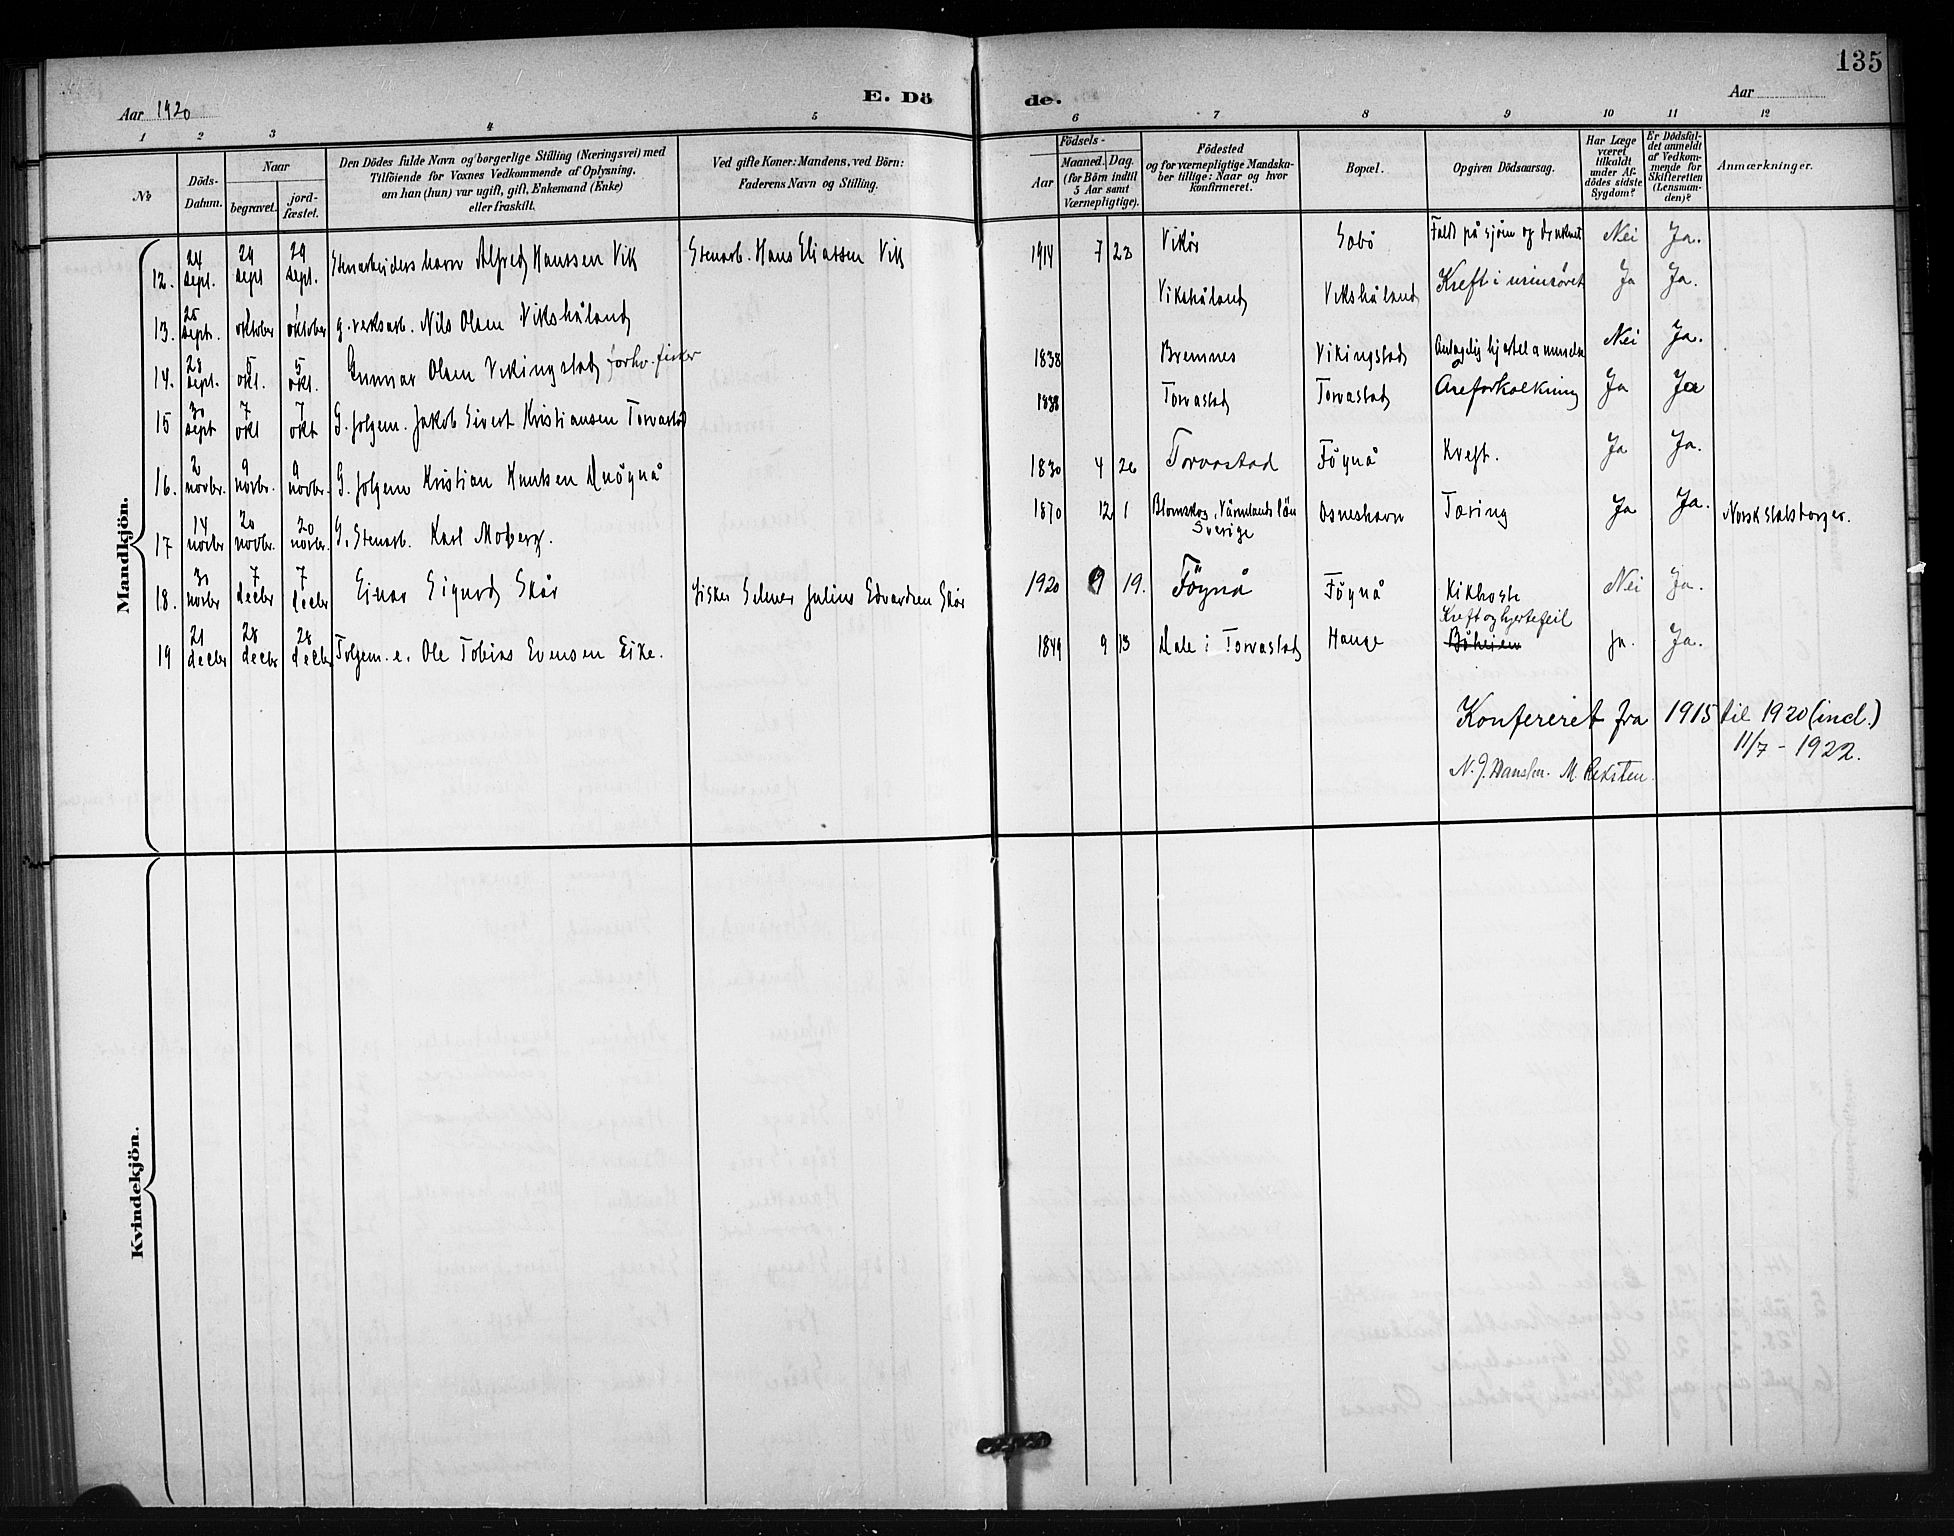 135
Aar 1920
E. Dö
de.
Aar
1 2 3 4 5 6 7 8 9 10 11 12
No
Döds-Datum.
Naar
begravet.
jord-fæstet.
Den Dödes fulde Navn og borgerlige Stilling (Næringsvei) med
Tilföiende for Voxnes Vedkommende af Oplysning,
om han (hun) var ugift, gift, Enkemand (Enke)
eller fraskilt.
Ved gifte Koner: Mandens, ved Börn:
Faderens Navn og Stilling.
Födsels-
Aar
Maaned. Dag.
(for Börn indtil
5 Aar samt
Værnepligtige).
Födested
og for værnepligtige Mandska-
ber tillige: Naar og hvor
konfirmeret.
Bopæl.
Opgiven Dödsaarsag.
Har Læge
været
tilkaldt
under Af-
dödes sidste
Sygdom?
Er Dödsfal-
det anmeldt
af Vedkom-
mende for
Skifteretten
(Lensman-
den)?
Anmærkninger.
Mandkjön.
12. 24 sept. 29 sept 29 sept. Stenarbeiders barn Alfred Hanssen Vik Stenarb. Hans Eliassen Vik 1914 7 23 Vikør Sæbö Faldt på sjöen og druknet Nei Ja.
13. 25 sept. 1 oktober 1 oktober G. verksarb. Nils Olsen Vikshåland Vikshåland Vikshåland Kreft i urinröret Ja Ja.
14. 28 sept. 5 okt. 5 okt. Gunnar Olsen Vikingstad forhv. fisker 1838 Bremnes Vikingstad Antagelig hjertelammelse Nei Ja.
15 30 sept 7 okt 7 okt G. folgem. Jakob Sivert Kristiansen Torvastad 1838 Torvastad Torvastad Areforkalkning Ja Ja
16. 2 novbr. 9 novbr. 9 novbr. G. folgem Kristian Knutsen Fögnå 1830 4 26 Torvastad Fögnå Kreft. Ja Ja.
17 14 novbr 20 novbr. 20 novbr. G. Stenarb. Karl Moberg. 1870 12 1 Blomskog, Värmlands län Sverige Osneshavn Tæring Ja Ja. Norsk statsborger.
18. 30 novbr 7 decbr 7 decbr Einar Sigurd Skår fisker Selmer Julius Edvardsen Skår 1920 9 19. Fögnå Fögnå Kikhoste Nei Ja.
19 21 decbr 28 decbr 28 decbr Folgem. e. Ole Tobias Evensen Eike. 1849 9 13 Dale i Torvastad Hauge Kreft og hjertefeil ja. Ja.
Konfereret fra 1915 til 1920 (incl.)
11/7 - 1922.
N. J. Hansen. M. Reksten.
Kvindekjön.